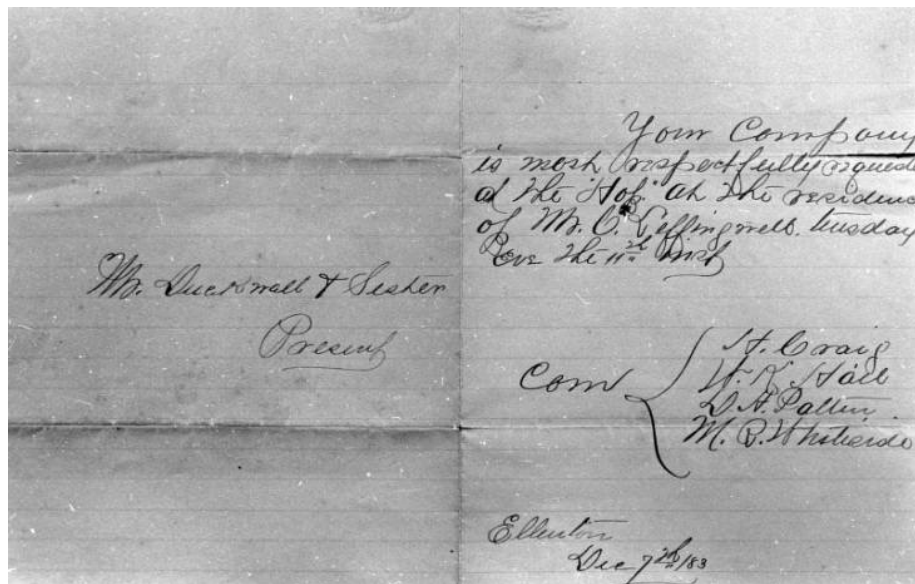 Mr. Duckwall & Sister
Present
Your Company
is most respectfully requeste
at the "Hop" at the residenc
of Mr. C. Leffingwell. tuesday
Eve the 11th inst
Com
H. Craig
W. K. Hall
D. A. Patten
M. B.
Ellenton
Dec 7th /83